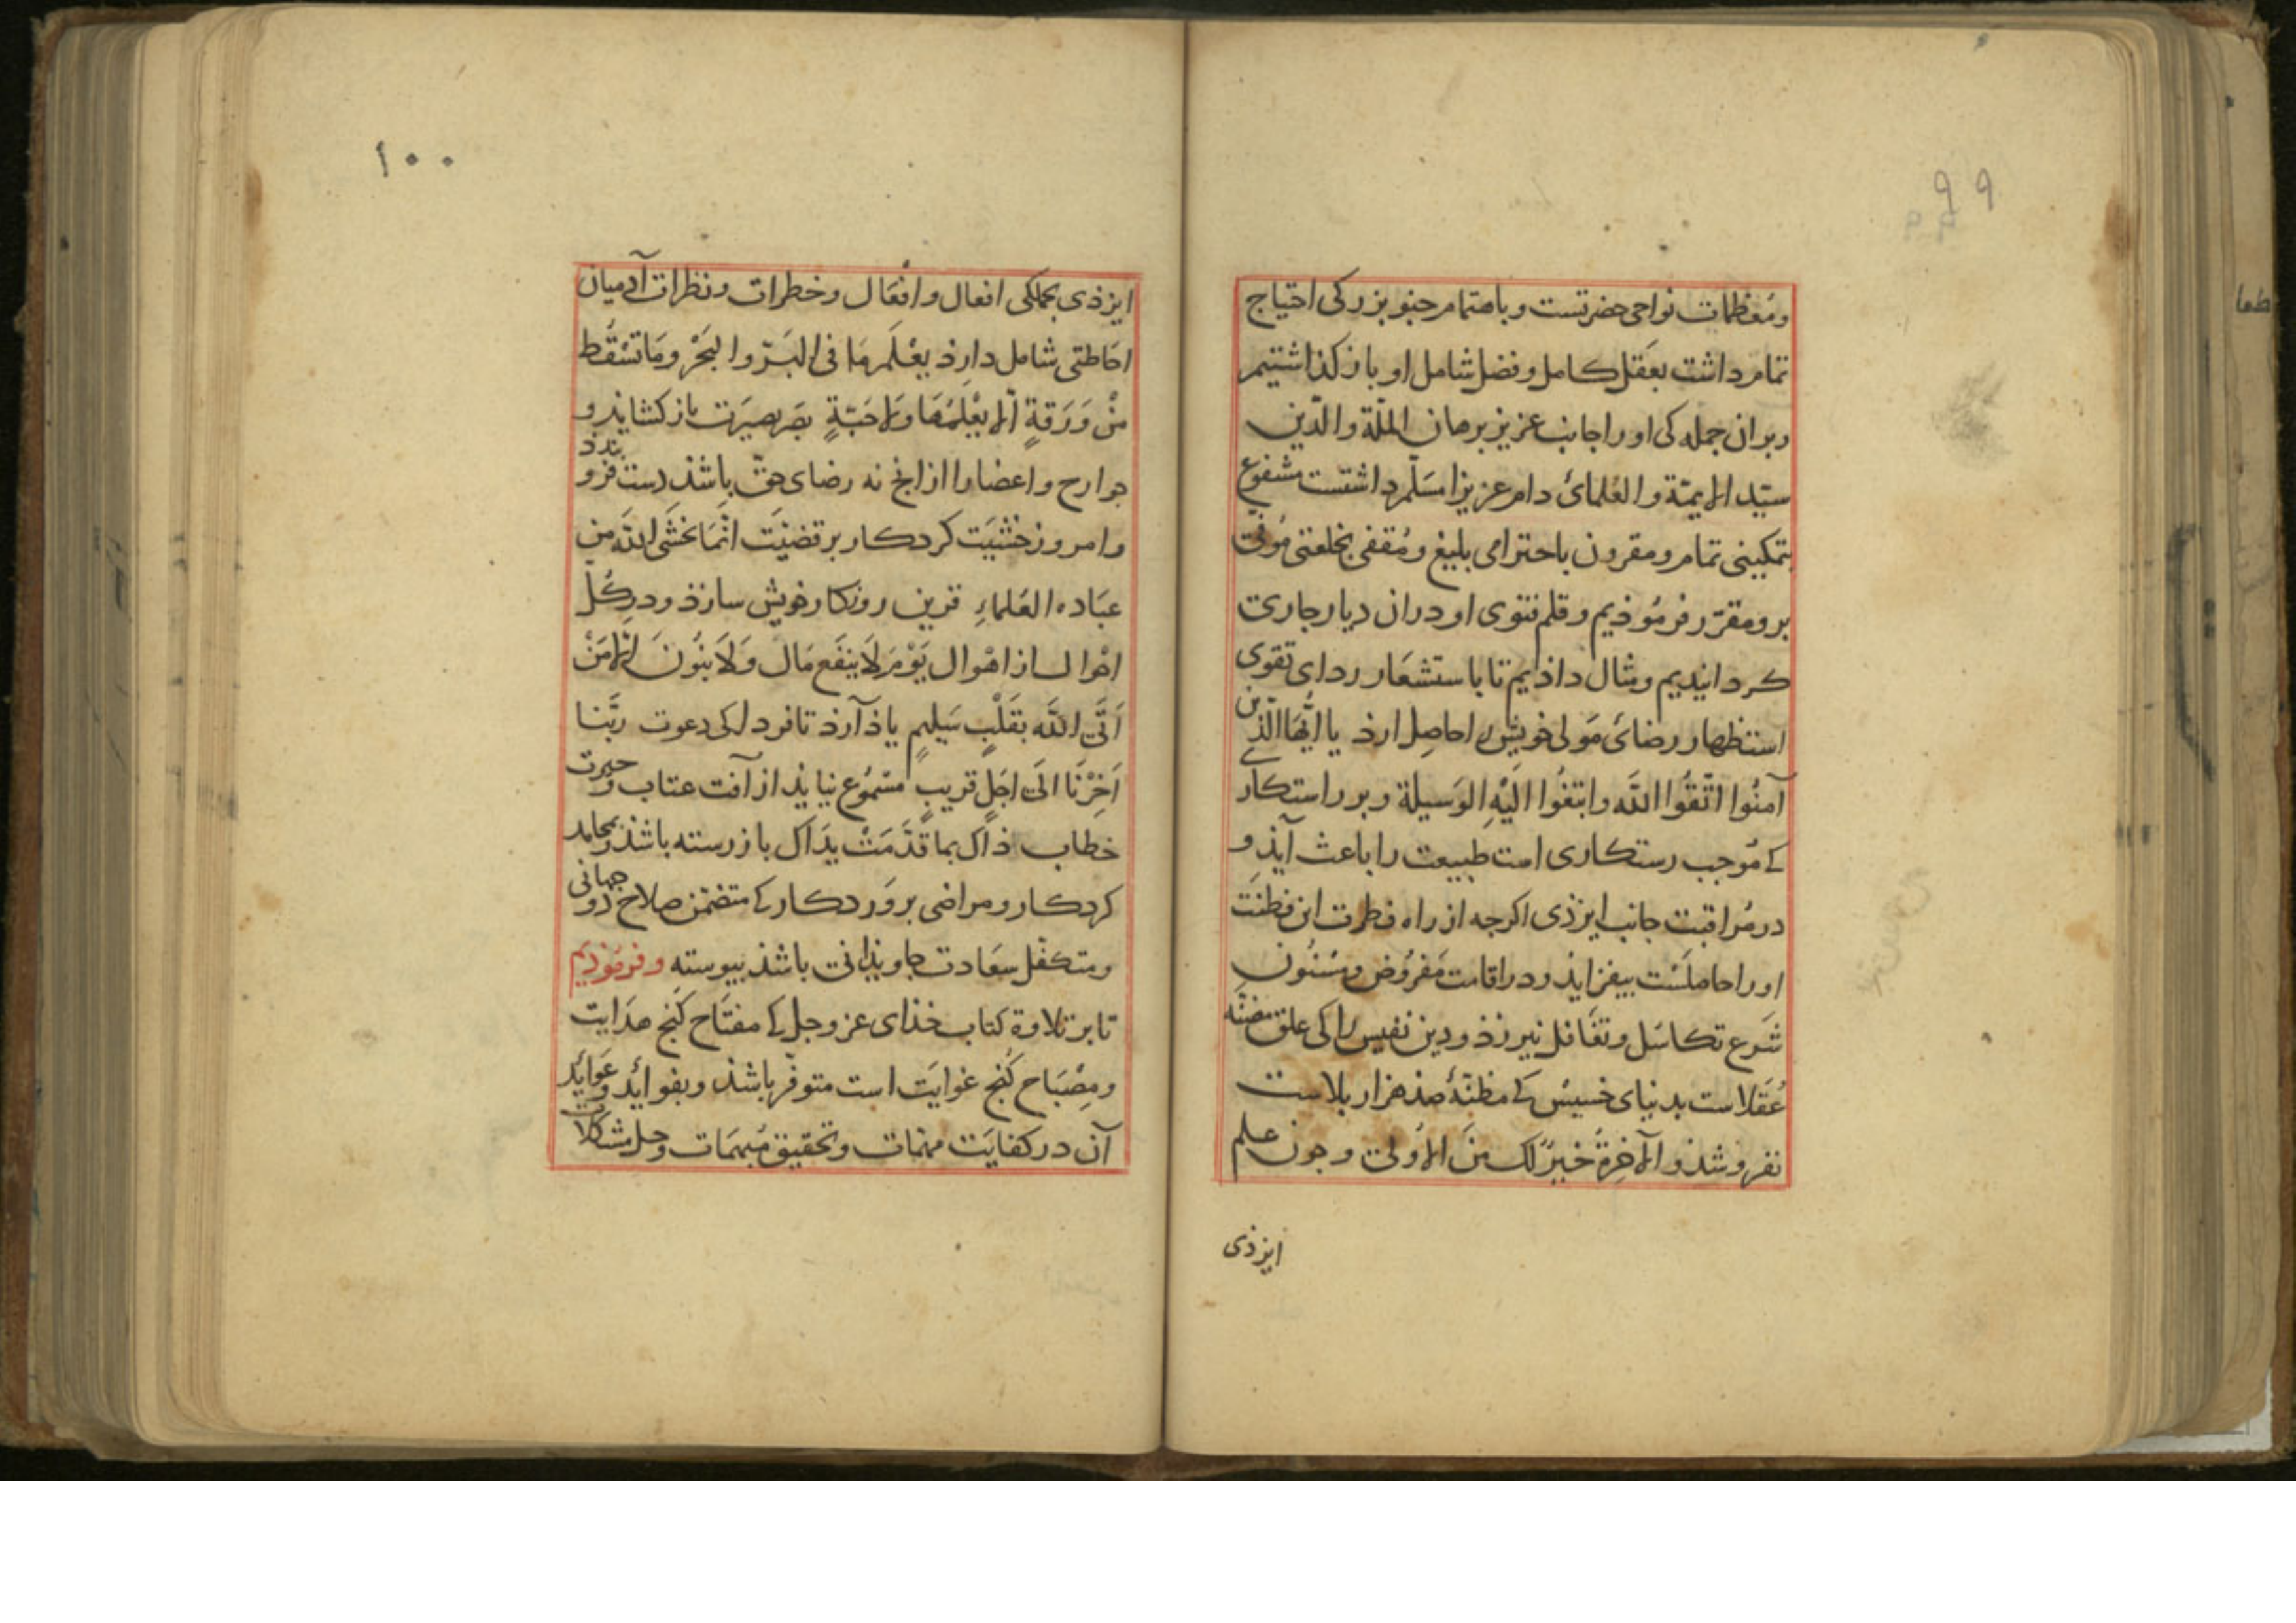 ۹۹
ومُعظمات نواحی حضرتست و باهتمام چنو بزرکی احتیاج
تمام داشت بعَقل کامل و فضل شامل او باز کذاشتیم
وبران جمله کی اورا جانب عزیز برهان الملّة والدّین
سیّد الایمّة والعُلمائ دام عزیزا مسَلّم داشتست مشفوع
بتمکینی تمام و مقرون باحترامی بلیغ و مُقفی بخلعتی مُوفی
برو مقرّر فرمُوذیم و قلم فتوی او دران دیار جاری
کردانیدیم و مثال داذیم تا باستشعَار ردای تقوی
استظهار رضائ مَولی خویش را حاصِل ارذ یا ایُّها الّذین
آمنُوا اتّقُوا اللَّه وابتغُوا الَیْهِ الوَسیلة و بر راستکاری
کی مُوجب رستکاری است طبیعت را باعث آیذ و
در مُراقبت جانب ایزذی اکرجه از راه فطرت این فطنَت
اورا حاصلَست بیفزایذ و در اقامت مَفرُوض و مَسْنُون
شَرع تکاسُل و تغَافل نبرزذ و دین نفیس را کی علق مضنّه
عُقلاست بدنیای خسیسْ کی مظنّهٔ صذ هزار بلاست
نفروشذ و الآخِرةُ خیرٌ لک منَ الاُولی و جون علم
ایزذی
۱۰۰
ایزذی بجملکی افعال و اقوَال و خطرات و نظرات آدمیان
احَاطتی شامل دارذ یعْلَم مَا فی البَرّ والبَحْر ومَا تسْقُط
مْنْ وَرَقةٍ الّا یعْلمُهَا وَلا حَبّةٍ بصَر بصیرَت باز کشایذ و
جوارح و اعضا را از انج نه رضای حقّ باشذ دست فرو بندذ
و امروز خشیَت کردکار بر قضیَّت انّمَا یخشَی اللَّه من
عبَاده العُلماءِ قرین روزکار خویش سازذ و در کُلّ
احْوال از اهْوال یَوْمَ لَا ینفَع مَال وَلَا بنُونَ اِلّا مَنْ
اَتَی اللَّه بقَلْبٍ سَلیمٍ یاذ آرذ تا فردا کی دعوت ربَّنا
اَخِرْنَا الَی اجَلٍ قریبٍ مسْمُوع نیایذ از آفت عتاب و حیرت
خطاب ذاک بما قدَّمَتْ یدَاک باز رسته باشذ و بمحامد
کردکار و مراضی پروَردکار کی متضمّن صلاح دو جهانی
و متکفّل سعَادت جاویذانی باشذ پیوسته و فرمُوذیم
تا بر تلاوة کتاب خذای عزوجل کی مفتَاح کَنج هدَایت
و مِصْبَاح کُنج غوایَت است متوفّر باشذ و بفوائد و عَوائد
آن در کفایَت مهمّات و تحقیق مُبهمَات و حل مشکلات